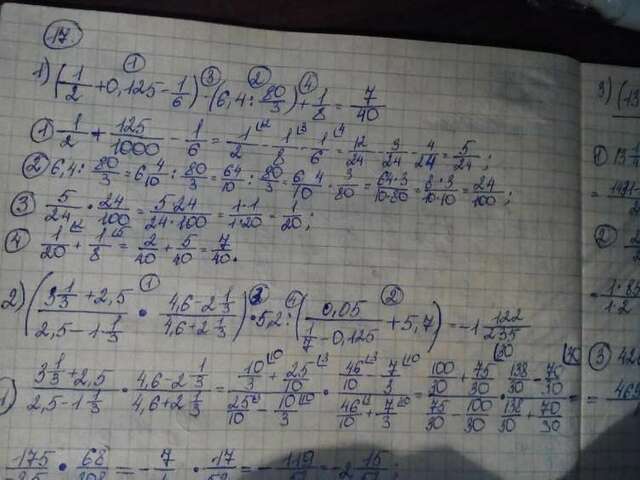 17.
1) (1/2 + 0,125 - 1/6) · (6,4 : 80/3) + 1/8 = 7/40
① 1/2 + 125/1000 - 1/6 = 1/2 - 1/8 - 1/6 = 12/24 - 3/24 - 4/24 = 5/24 ;
② 6,4 : 80/3 = 6 4/10 : 80/3 = 64/10 : 80/3 = 64/10 · 3/80 = 64·3/10·80 = 8·3/10·10 = 24/100 ;
③ 5/24 · 24/100 = 5·24/24·100 = 1·1/1·20 = 1/20 ;
④ 1/20 + 1/8 = 2/40 + 5/40 = 7/40 .
2) (3 1/3 + 2,5 / 2,5 - 1 1/3 · 4,6 - 2 1/3 / 4,6 + 2 1/3) · 5,2 : (0,05 / 1/7 - 0,125 + 5,7) = -1 122/235
1) 3 1/3 + 2,5 / 2,5 - 1 1/3 · 4,6 - 2 1/3 / 4,6 + 2 1/3 = 10/3 + 25/10 / 25/10 - 10/3 · 46/10 - 7/3 / 46/10 + 7/3 = 100/30 + 75/30 / 75/30 - 100/30 · 138/30 - 70/30 / 138/30 + 70/30 =
175 · 68 = - 7 · 17 = - 119 = -2 15
3) (13
①
②
③ 42